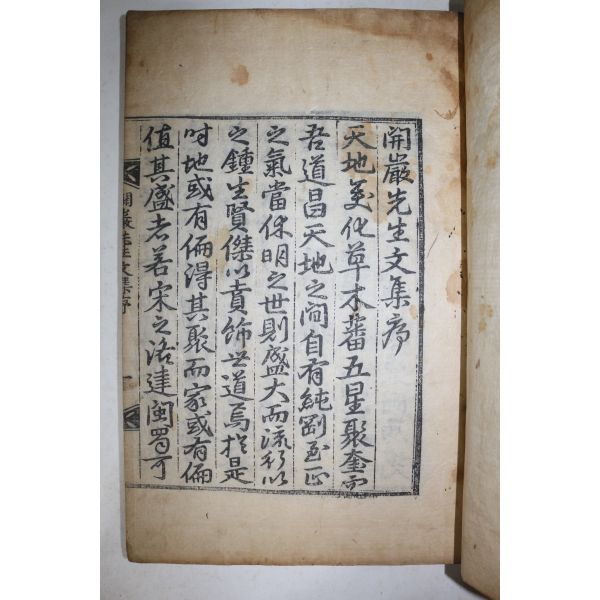 開巖先生文集序
天地變化草木蕃五星聚奎而
吾道昌天地之間自有純剛至正
之氣當休明之世則盛大而流行以
之鍾生賢傑以賁飾世道焉於是
時地或有偏得其聚而家或有偏
值其盛者若宋之洛建閩蜀可
開巖先生文集序
一